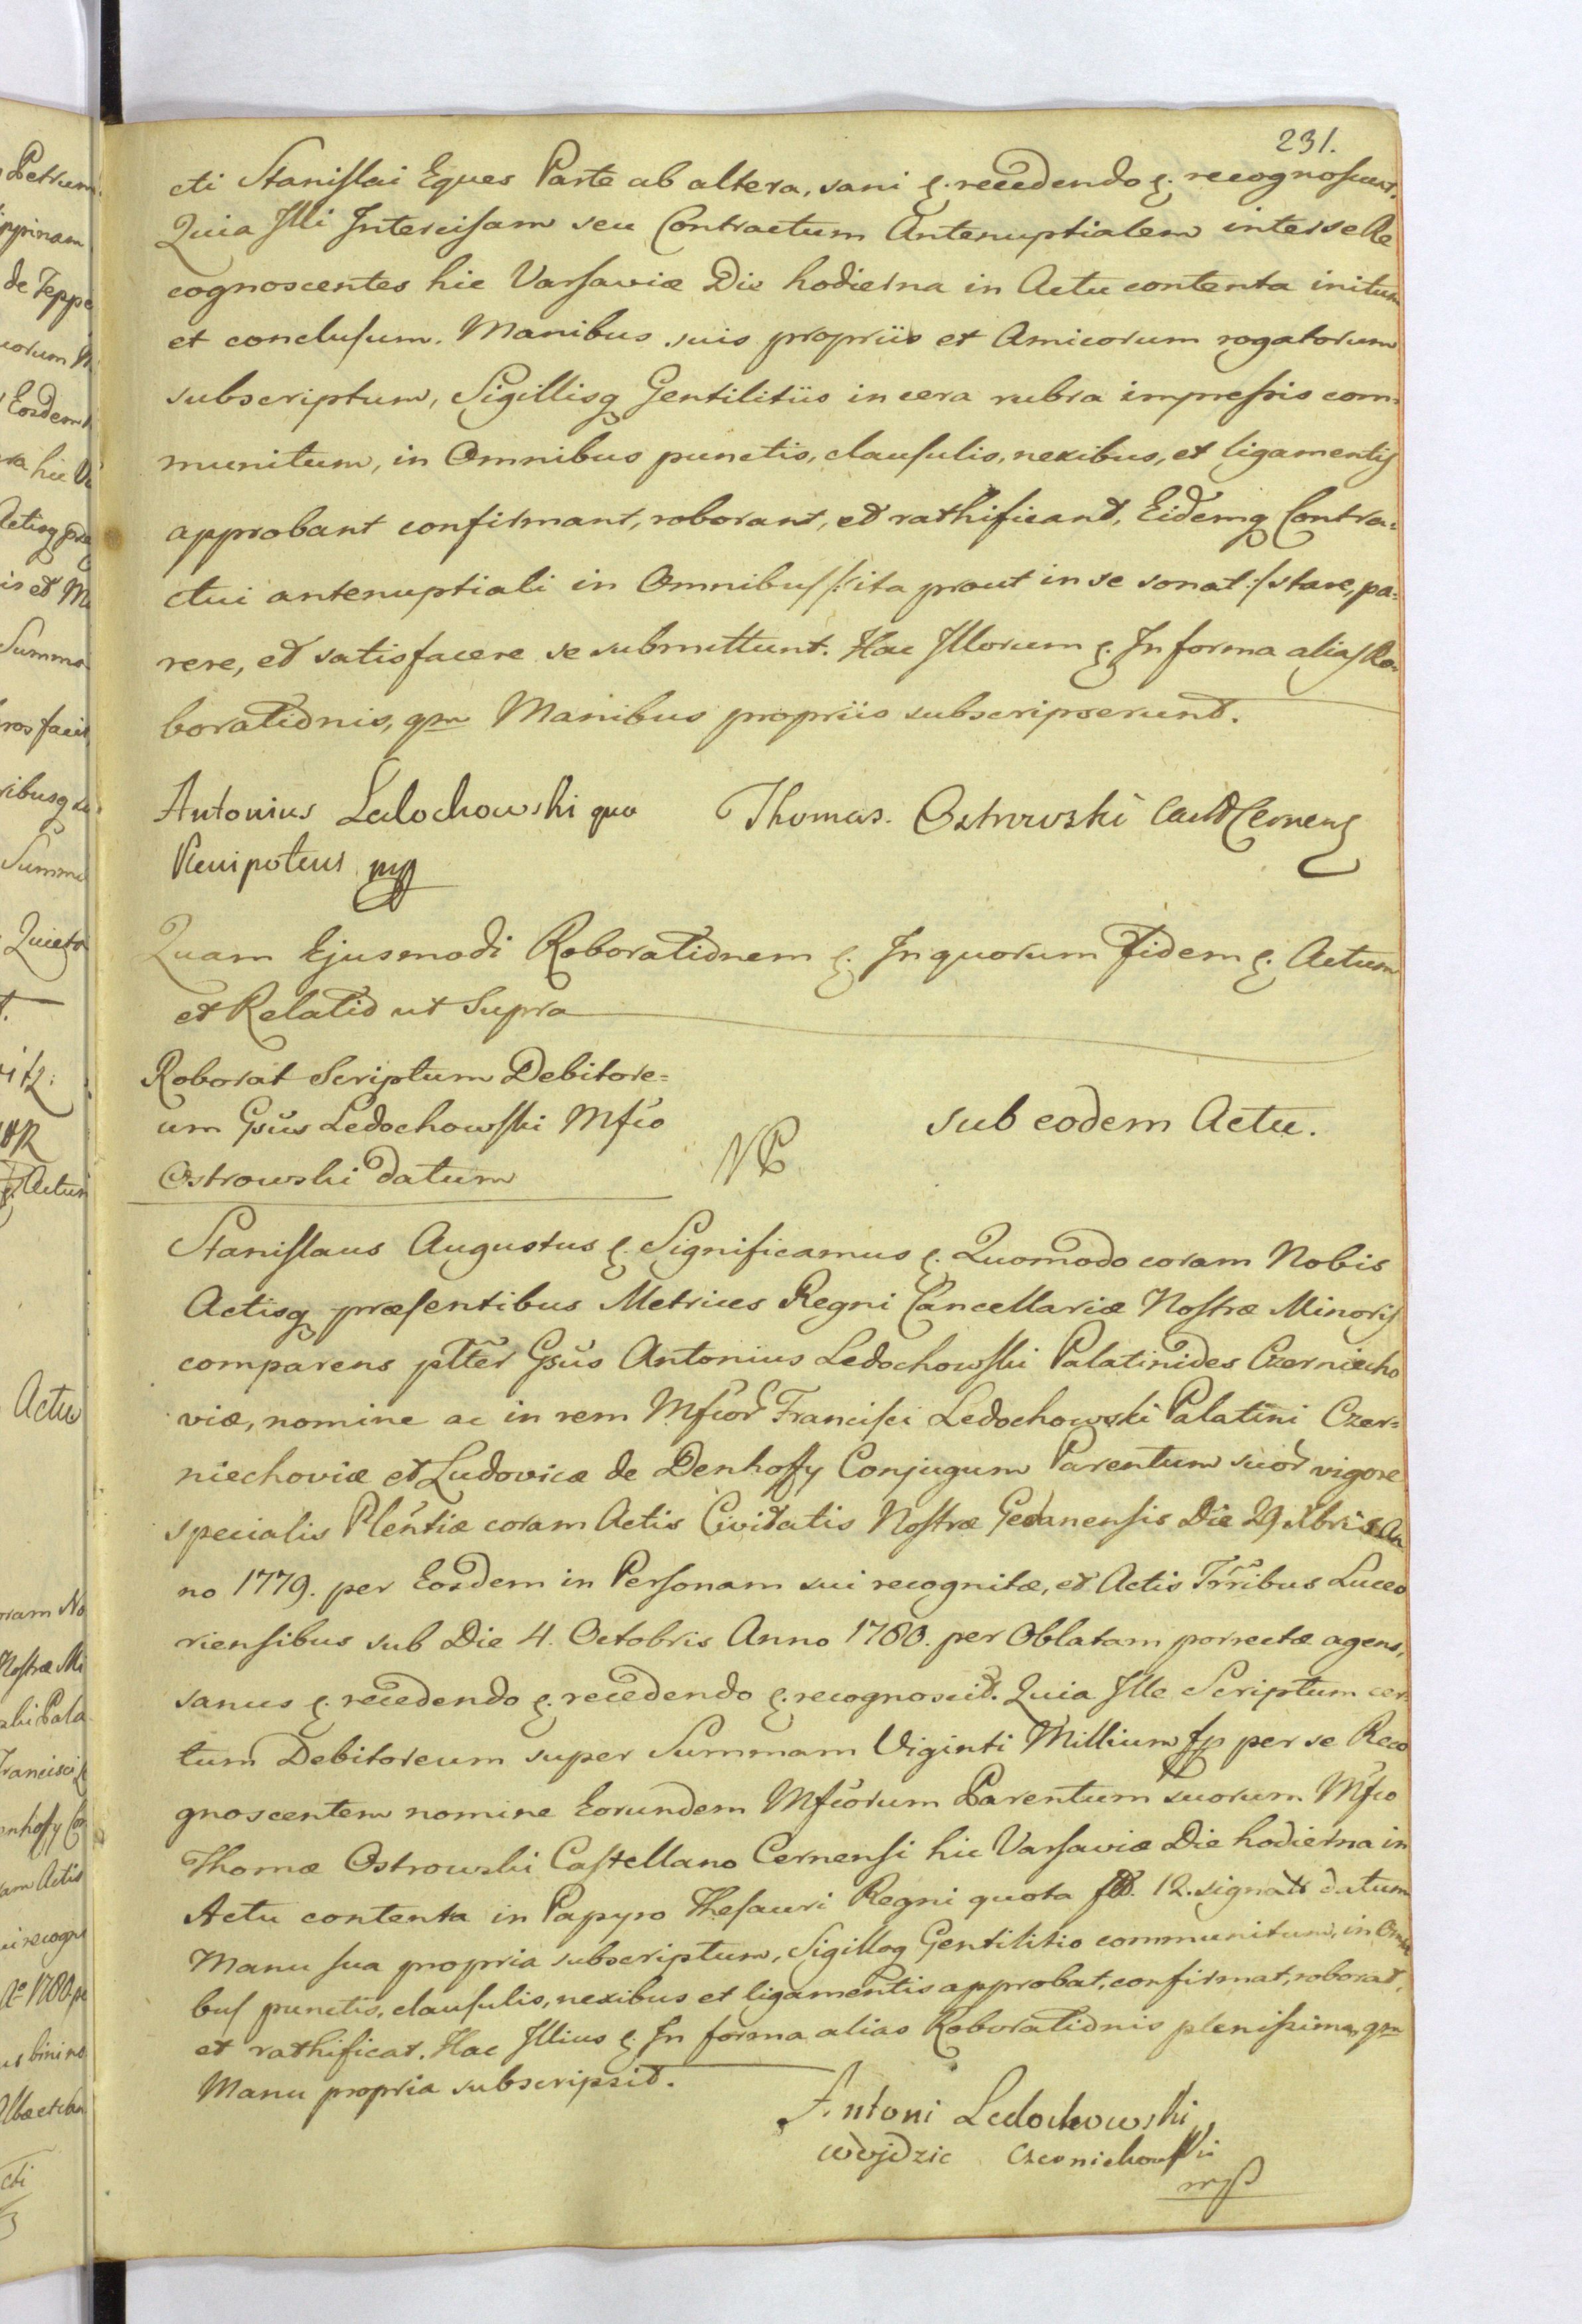 231.
cti Stanislai Eques Parte ab altera, sani &. recedendo &. recognoscunt.
Quia Illi Intercisam seu Contractum Antenuptialem inter se Re
cognoscentes hic Varsaviæ Die hodierna in Actu contenta initum
et conclusum. Manibus suis propriis et Amicorum rogatorum
subscriptum, Sigillisq Gentilitiis in cera rubra impressis com=
munitum, in Omnibus punctis, clausulis, nexibus, et ligamentis
approbant confirmant, roborant, et rathificant, Eidemq Contra=
ctui antenuptiali in Omnibus /: ita prout in se sonat :/ stare, pa=
rere, et satisfacere se submittunt. Hac Illorum &. In forma alias Ro=
borationis, qm Manibus propriis subscripserunt.
Antonius Ledochowski qua Thomas. Ostrowski Cast Cernens
Plenipotens mp
Quam Ejusmodi Roborationem &. In quorum Fidem &. Actum
et Relatio ut Supra
Roborat Scriptum Debitore=
um Gsus Ledochowski Mfco
Ostrowski datum
NP
sub eodem Actu.
Stanislaus Augustus &. Significamus &. Quomodo coram Nobis
Actisq præsentibus Metrices Regni Cancellariæ Nostræ Minoris
comparens pltter Gsus Antonius Ledochowski Palatinides Czerniecho
viæ, nomine ac in rem Mfcor Francisci Ledochowski Palatini Czer=
niechoviæ et Ludovicæ de Denhoffy Conjugum Parentum suor vigore
specialis Plentiæ coram Actis Civitatis Nostræ Gedanensis Die 29 Xbris An
no 1779. per Eosdem in Personam sui recognitæ, et Actis Trribus Luceo
riensibus sub Die 4. Octobris Anno 1780. per Oblatam porrectæ agens,
sanus &. recedendo &. recedendo &. recognoscit. Quia Ille Scriptum cer
tum Debitoreum super Summam Viginti Millium fp per se Reco
gnoscentem nomine Eorundem Mfcorum Parentum suorum Mfco
Thomæ Ostrowski Castellano Cernensi hic Varsaviæ Die hodierna in
Actu contenta in Papyro Thesauri Regni quota 12. signato datum
Manu sua propria subscriptum, Sigilloq Gentilitio communitum, in Omni
bus punctis, clausulis, nexibus et ligamentis approbat, confirmat, roborat,
et rathificat. Hac Illius &. In forma alias Roborationis plenissima, qm
Manu propria subscripsit.
Antoni Ledochowski
wojdzic Czernichowski
mp